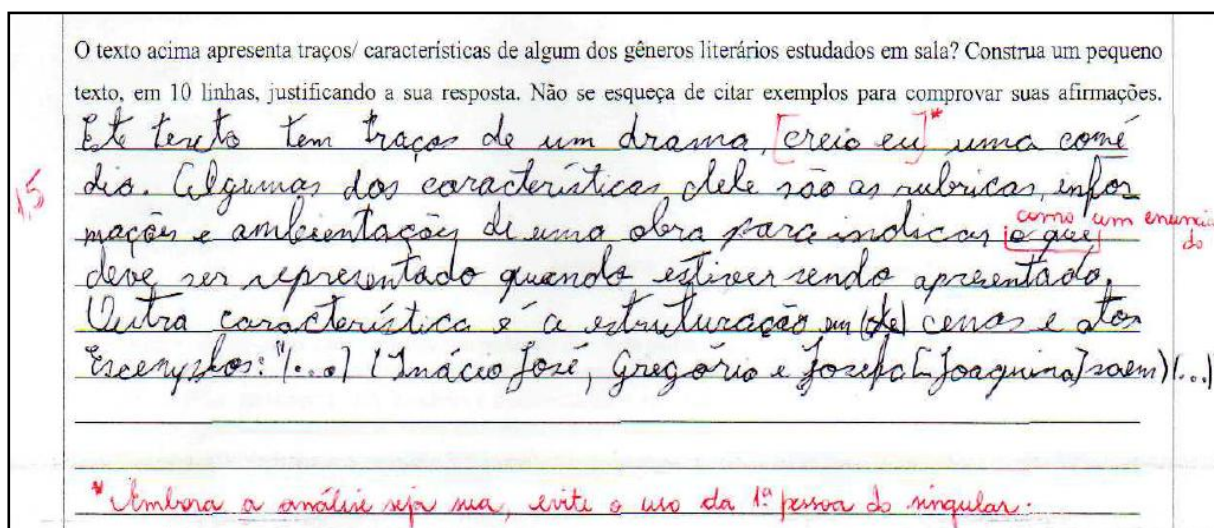 O texto acima apresenta traços/ características de algum dos gêneros literários estudados em sala? Construa um pequeno
texto, em 10 linhas, justificando a sua resposta. Não se esqueça de citar exemplos para comprovar suas afirmações.
Este texto tem traços de um drama, [creio eu]* uma comé
dia. Algumas das características dele são as rubricas, infor
1,5
mações e ambientações de uma obra para indicar o que como um enuncia
do
deve ser representado quando estiver sendo apresentado.
Outra característica é a estruturação em (de) cenas e atos
Exemplos: "(...) (Inácio José, Gregório e Josefa [Joaquina] saem) (...)
* Embora a análise seja sua, evite o uso da 1ª pessoa do singular.